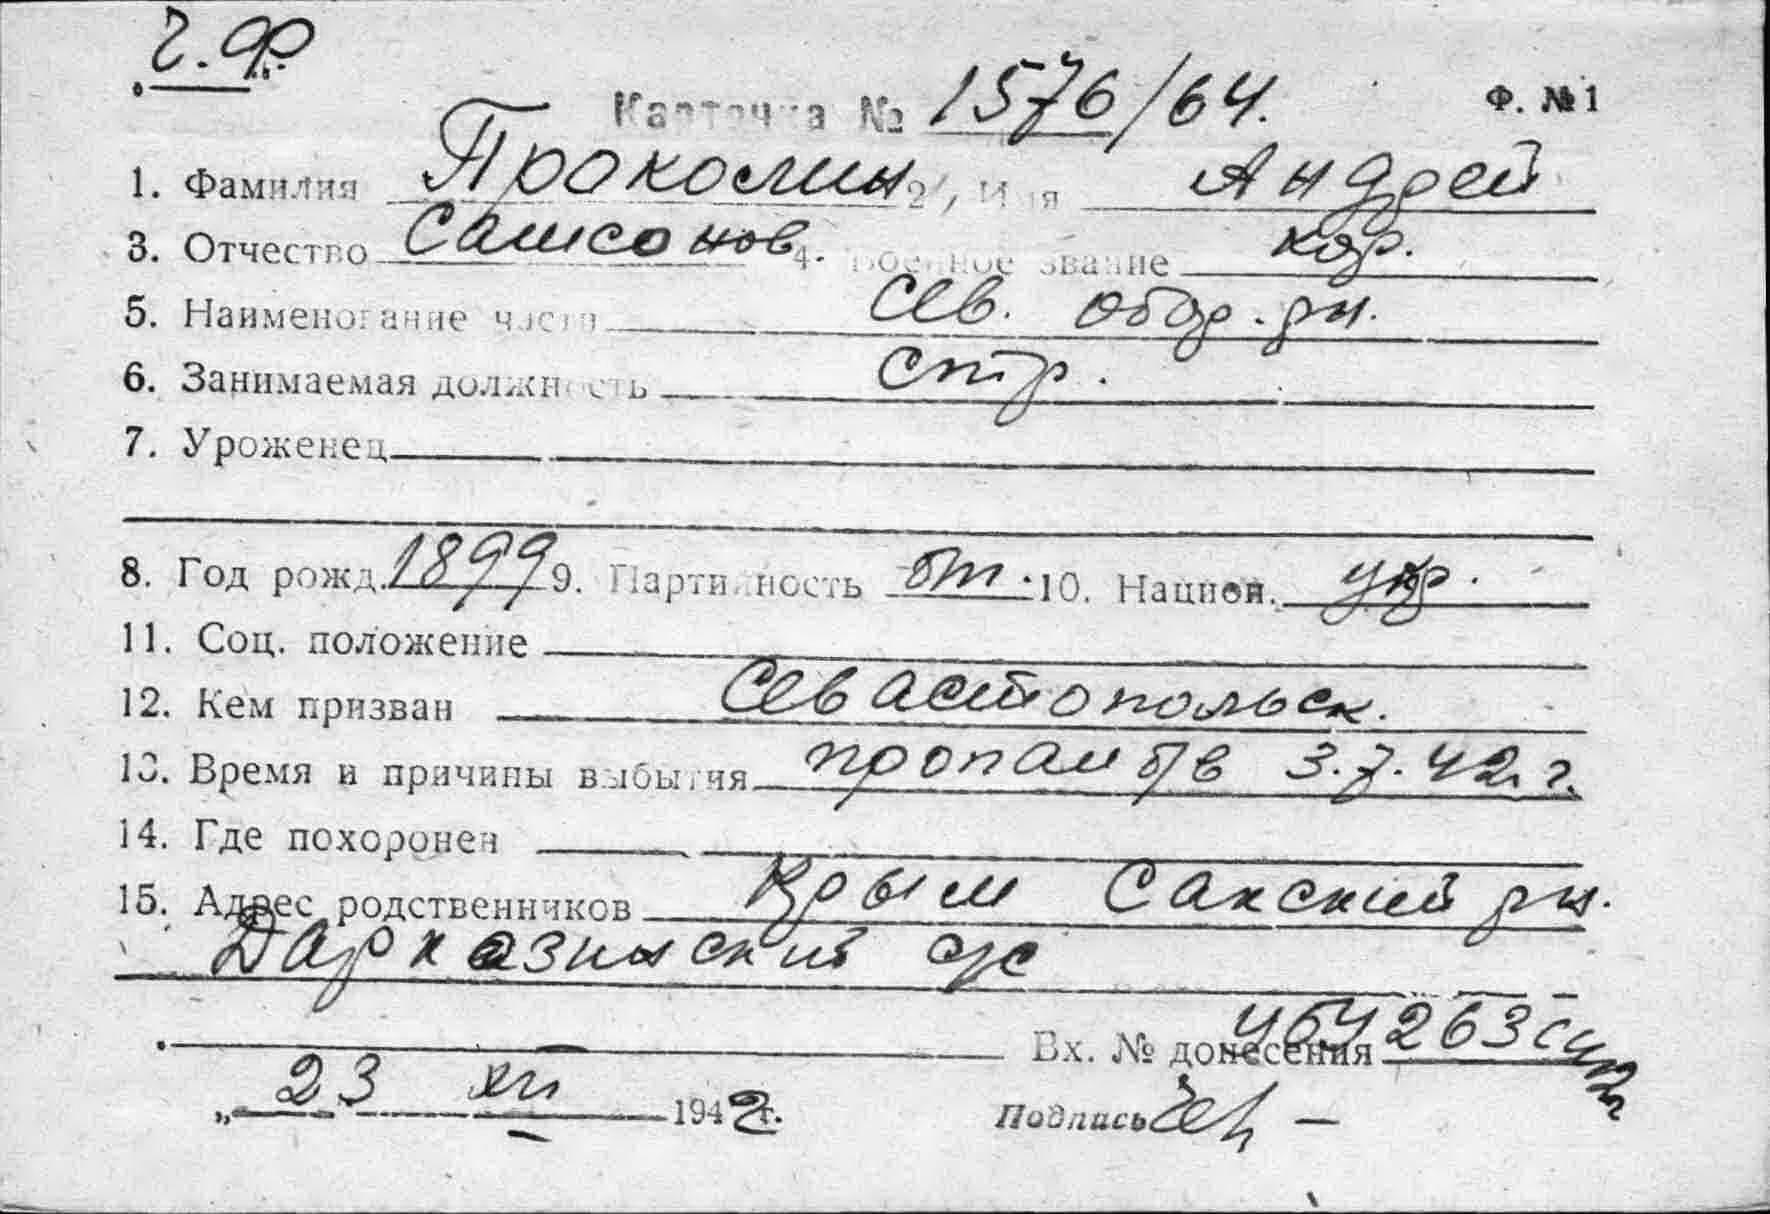 Ч.Ф.
Карточка № 1576/64. Ф. № 1
1. Фамилия Прокомин 2, Имя Андрей
3. Отчество Самсонов 4. Военное звание кр.
5. Наименование части Сев. обор. рн.
6. Занимаемая должность стр.
7. Уроженец
8. Год рожд. 1899 9. Партийность бп. 10. Национ. укр.
11. Соц. положение
12. Кем призван Севастопольск.
13. Время и причины выбытия пропал б/в 3.7.42 г.
14. Где похоронен
15. Адрес родственников Крым Сакский рн.
с/с
Вх. № донесения 464263
„ 23 XII 1942 г. Подпись